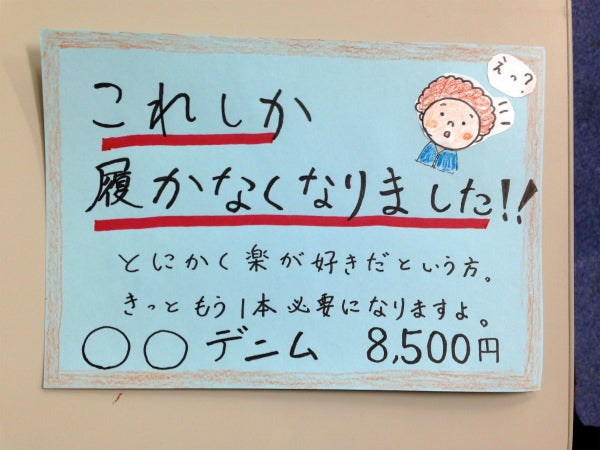 えっ?
これしか
履かなくなりました!!
とにかく楽が好きだという方。
きっともう1本必要になりますよ。
○○デニム 8,500円